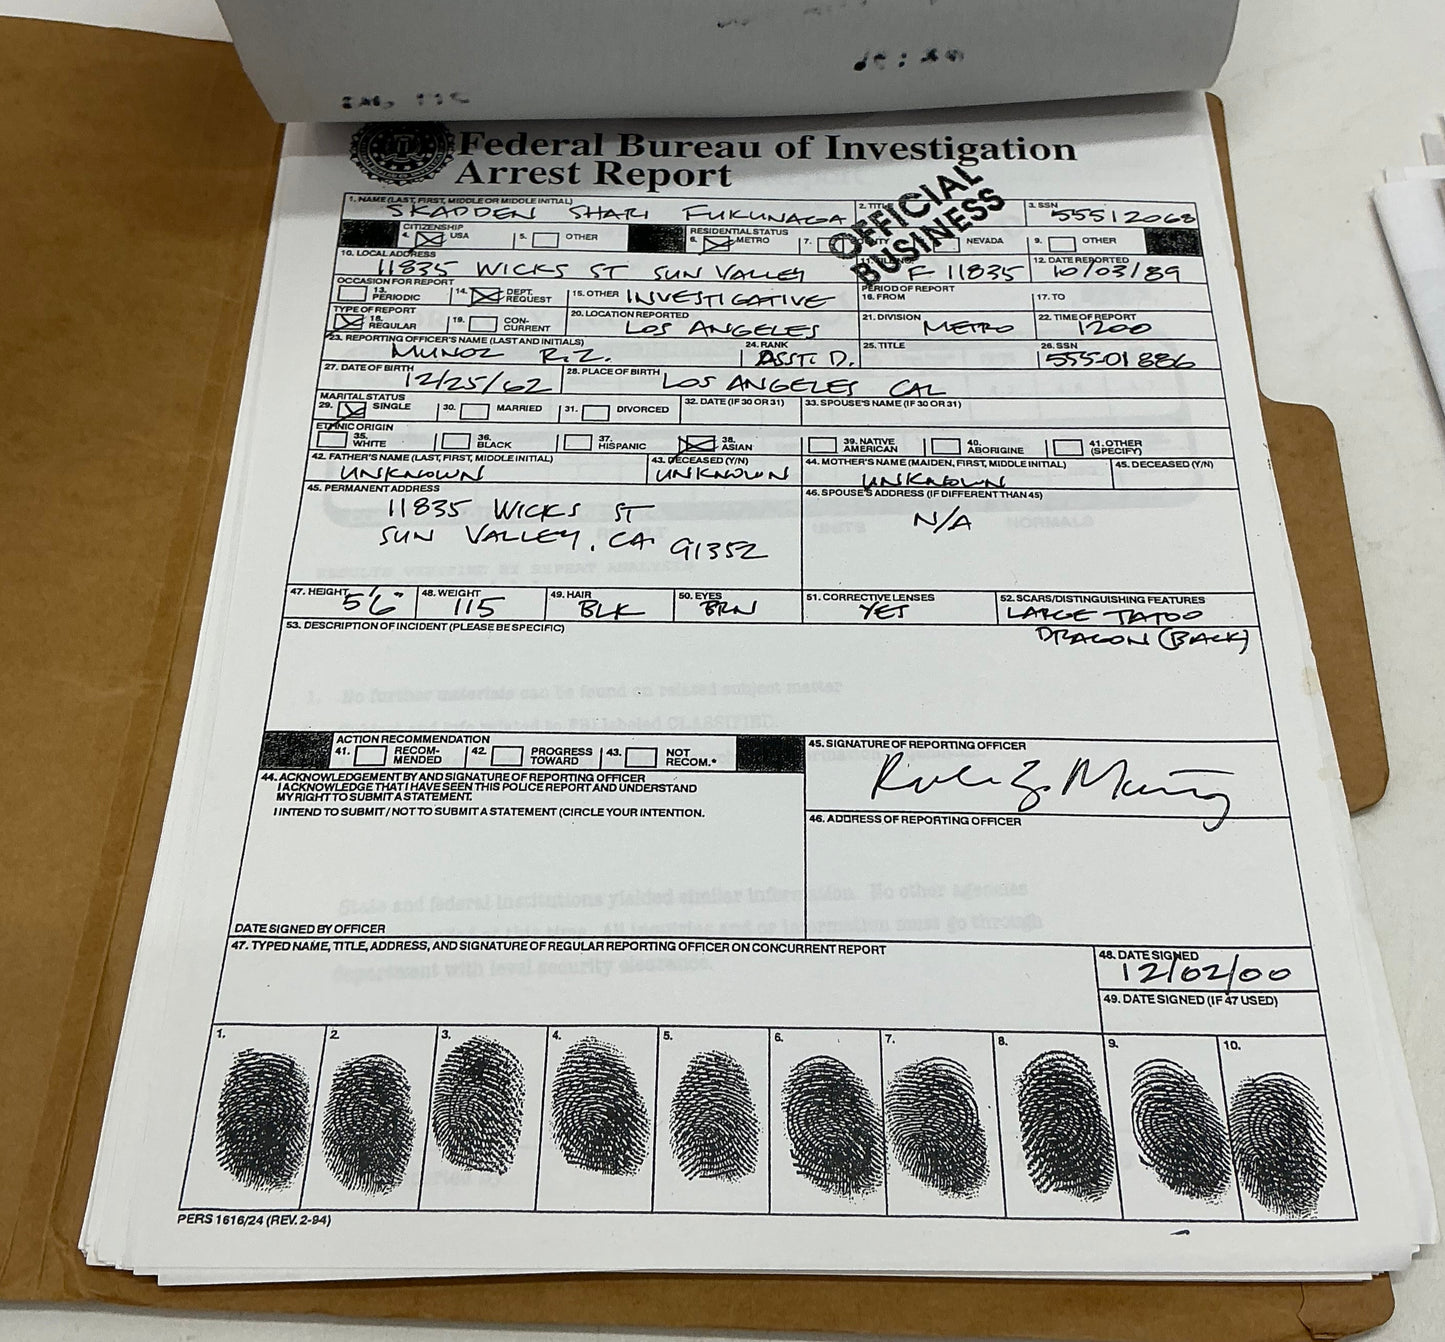 Federal Bureau of Investigation
Arrest Report
OFFICIAL
BUSINESS
1. NAME (LAST, FIRST, MIDDLE OR MIDDLE INITIAL) 2. TITLE 3. SSN
SKADDEN SHARI FUKUNAGA 55512068
CITIZENSHIP RESIDENTIAL STATUS
4. USA 5. OTHER 6. METRO 7. COUNTY NEVADA 9. OTHER
10. LOCAL ADDRESS 12. DATE REPORTED
11835 WICKS ST SUN VALLEY F 11835 10/03/89
OCCASION FOR REPORT PERIOD OF REPORT
13. PERIODIC 14. DEPT. REQUEST 15. OTHER INVESTIGATIVE 16. FROM 17. TO
TYPE OF REPORT 20. LOCATION REPORTED 21. DIVISION 22. TIME OF REPORT
18. REGULAR 19. CON-CURRENT LOS ANGELES METRO 1200
23. REPORTING OFFICER'S NAME (LAST AND INITIALS) 24. RANK 25. TITLE 26. SSN
MUNOZ R.Z. ASST. D. 555-01886
27. DATE OF BIRTH 12/25/62 28. PLACE OF BIRTH LOS ANGELES CAL
MARITAL STATUS
29. SINGLE 30. MARRIED 31. DIVORCED 32. DATE (IF 30 OR 31) 33. SPOUSE'S NAME (IF 30 OR 31)
ETHNIC ORIGIN
35. WHITE 36. BLACK 37. HISPANIC 38. ASIAN 39. NATIVE AMERICAN 40. ABORIGINE 41. OTHER (SPECIFY)
42. FATHER'S NAME (LAST, FIRST, MIDDLE INITIAL) 43. DECEASED (Y/N) 44. MOTHER'S NAME (MAIDEN, FIRST, MIDDLE INITIAL) 45. DECEASED (Y/N)
UNKNOWN UNKNOWN UNKNOWN
45. PERMANENT ADDRESS 46. SPOUSE'S ADDRESS (IF DIFFERENT THAN 45)
11835 WICKS ST N/A
SUN VALLEY, CA 91352
47. HEIGHT 5'6" 48. WEIGHT 115 49. HAIR BLK 50. EYES BRN 51. CORRECTIVE LENSES YES 52. SCARS/DISTINGUISHING FEATURES
LARGE TATOO
DRAGON (BACK)
53. DESCRIPTION OF INCIDENT (PLEASE BE SPECIFIC)
ACTION RECOMMENDATION
41. RECOM-MENDED 42. PROGRESS TOWARD 43. NOT RECOM.*
45. SIGNATURE OF REPORTING OFFICER
44. ACKNOWLEDGEMENT BY AND SIGNATURE OF REPORTING OFFICER
I ACKNOWLEDGE THAT I HAVE SEEN THIS POLICE REPORT AND UNDERSTAND
MY RIGHT TO SUBMIT A STATEMENT.
I INTEND TO SUBMIT / NOT TO SUBMIT A STATEMENT (CIRCLE YOUR INTENTION.
46. ADDRESS OF REPORTING OFFICER
DATE SIGNED BY OFFICER
47. TYPED NAME, TITLE, ADDRESS, AND SIGNATURE OF REGULAR REPORTING OFFICER ON CONCURRENT REPORT
48. DATE SIGNED
12/02/00
49. DATE SIGNED (IF 47 USED)
1. 2. 3. 4. 5. 6. 7. 8. 9. 10.
PERS 1616/24 (REV. 2-94)